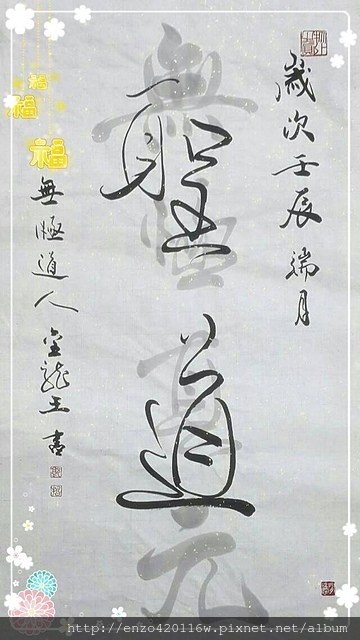 歲次壬辰端月
聖道
無極真元
無極道人金龍王書
福
福
福
http://enzo420116w.pixnet.net/album